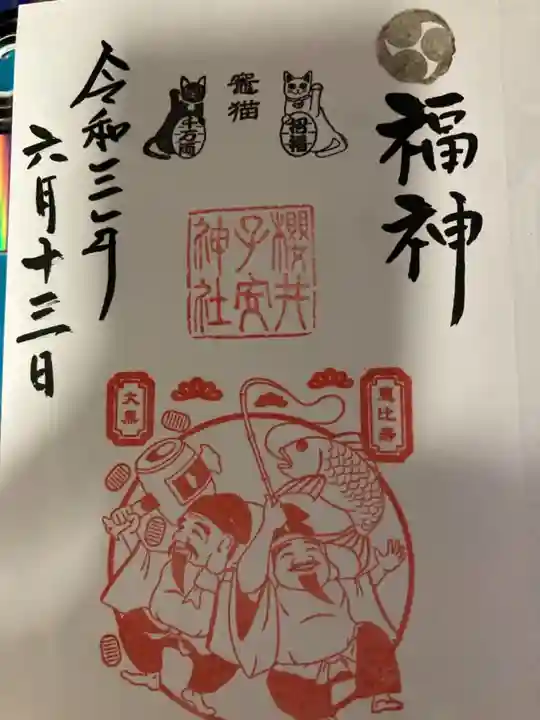 福神
竈猫
招福
千万両
櫻井
子安
神社
恵比寿
大黒
令和三年
六月十三日